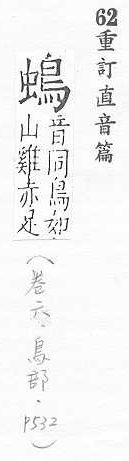 62重訂直音篇
䳋
音同鳥如
山雞赤足
(卷六·鳥部·P532)